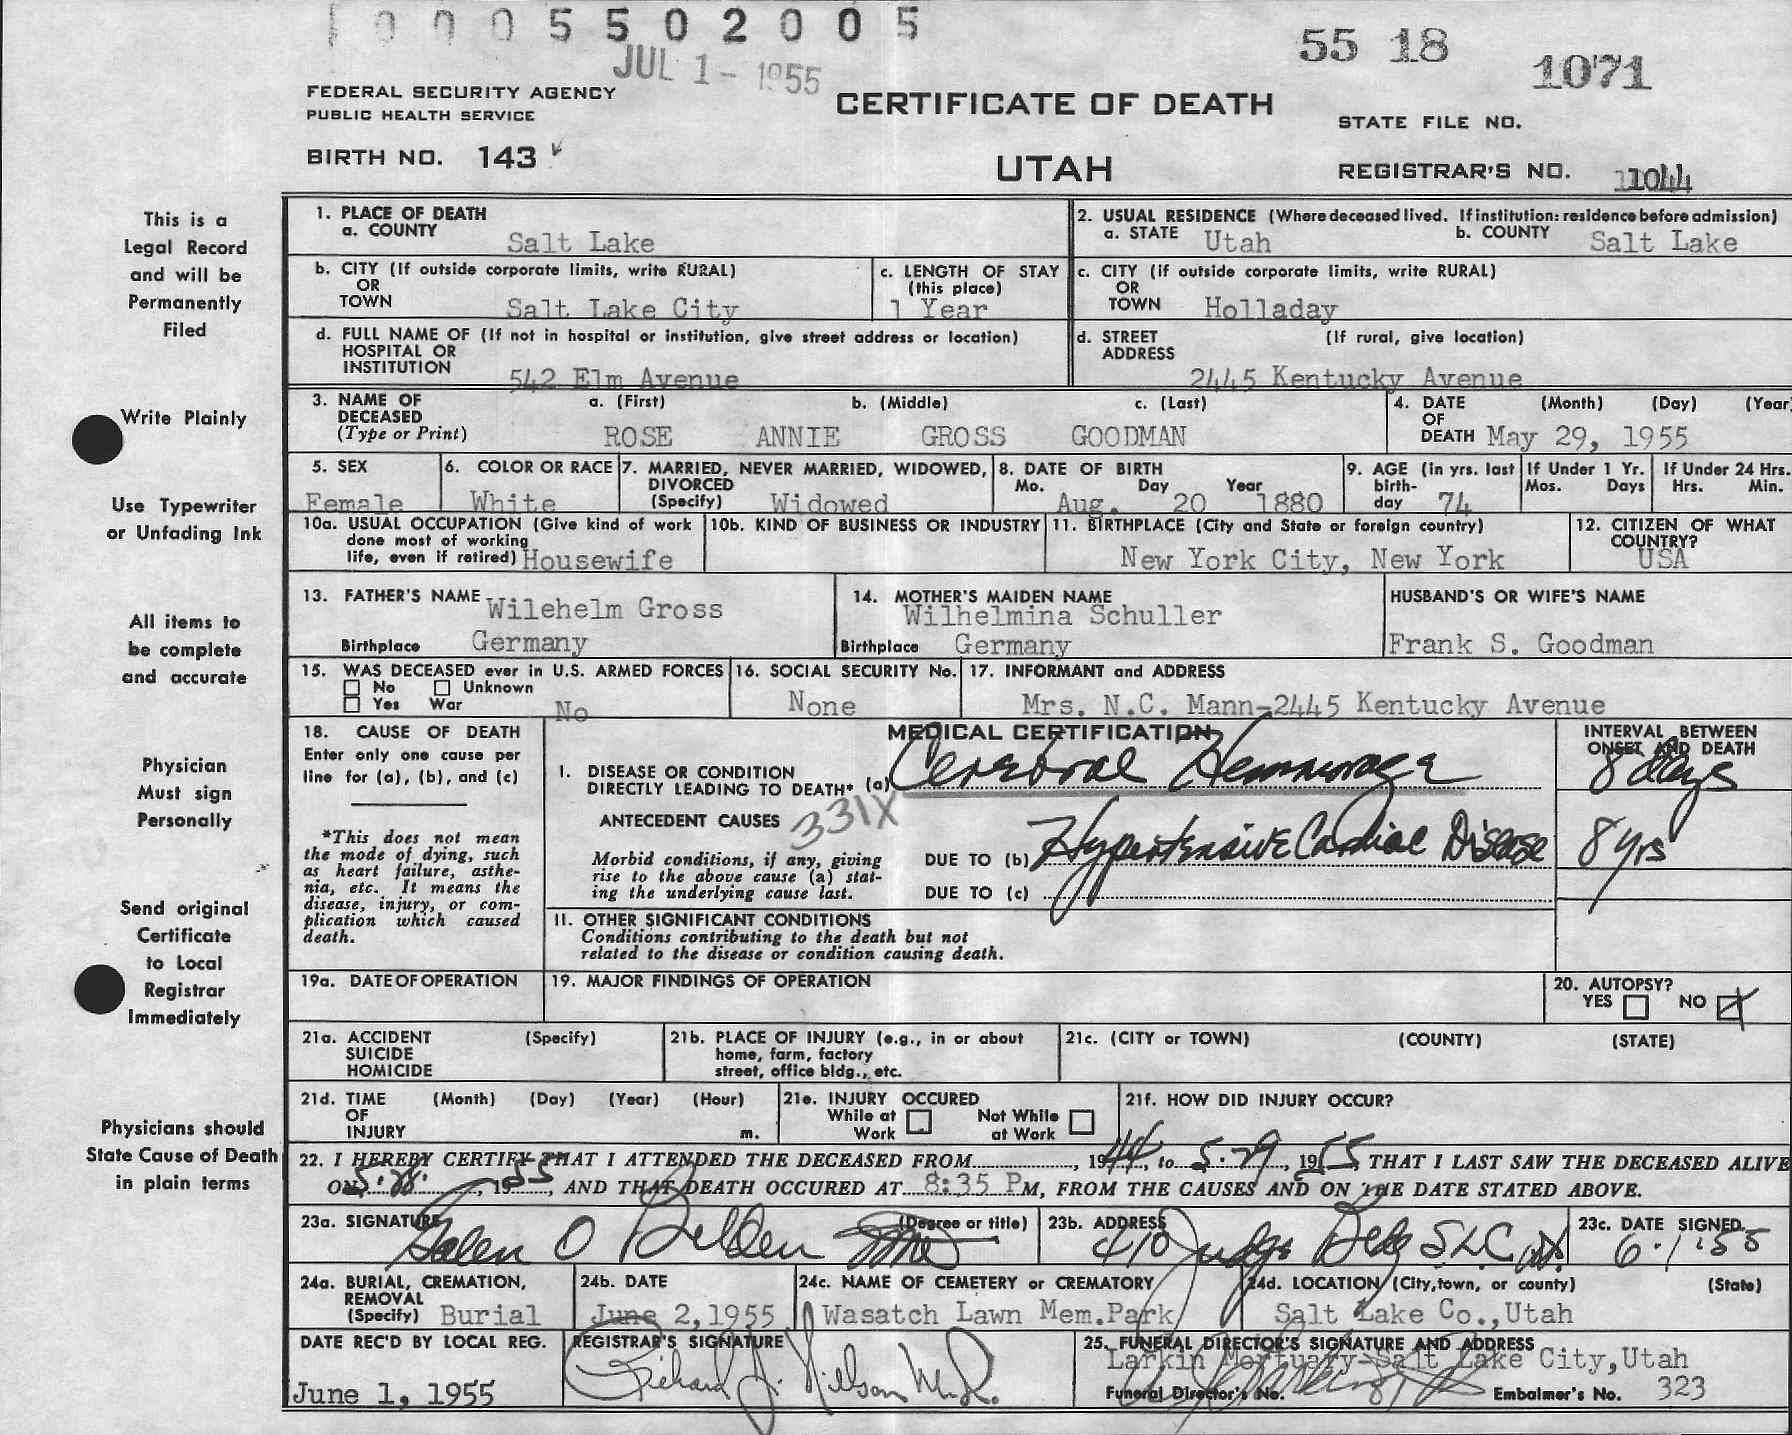 1 0 0 0 5 5 0 2 0 0 5
JUL 1 - 1955
55 18
1071
FEDERAL SECURITY AGENCY
PUBLIC HEALTH SERVICE
BIRTH NO. 143
CERTIFICATE OF DEATH
UTAH
STATE FILE NO.
REGISTRAR'S NO. 1044
This is a
Legal Record
and will be
Permanently
Filed
Write Plainly
Use Typewriter
or Unfading Ink
All items to
be complete
and accurate
Physician
Must sign
Personally
Send original
Certificate
to Local
Registrar
Immediately
Physicians should
State Cause of Death
in plain terms
1. PLACE OF DEATH
a. COUNTY Salt Lake
2. USUAL RESIDENCE (Where deceased lived. If institution: residence before admission)
a. STATE Utah b. COUNTY Salt Lake
b. CITY (If outside corporate limits, write RURAL)
OR
TOWN Salt Lake City
c. LENGTH OF STAY
(this place)
1 Year
c. CITY (if outside corporate limits, write RURAL)
OR
TOWN Holladay
d. FULL NAME OF (If not in hospital or institution, give street address or location)
HOSPITAL OR
INSTITUTION 542 Elm Avenue
d. STREET (If rural, give location)
ADDRESS
2445 Kentucky Avenue
3. NAME OF DECEASED
(Type or Print)
a. (First) b. (Middle) c. (Last)
ROSE ANNIE GROSS GOODMAN
4. DATE OF DEATH (Month) (Day) (Year
May 29, 1955
5. SEX
Female
6. COLOR OR RACE
White
7. MARRIED, NEVER MARRIED, WIDOWED,
DIVORCED
(Specify) Widowed
8. DATE OF BIRTH
Mo. Day Year
Aug. 20 1880
9. AGE (in yrs. last
birth-
day 74
If Under 1 Yr.
Mos. Days
If Under 24 Hrs.
Hrs. Min.
10a. USUAL OCCUPATION (Give kind of work
done most of working
life, even if retired) Housewife
10b. KIND OF BUSINESS OR INDUSTRY
11. BIRTHPLACE (City and State or foreign country)
New York City, New York
12. CITIZEN OF WHAT
COUNTRY?
USA
13. FATHER'S NAME Wilehelm Gross
Birthplace Germany
14. MOTHER'S MAIDEN NAME
Wilhelmina Schuller
Birthplace Germany
HUSBAND'S OR WIFE'S NAME
Frank S. Goodman
15. WAS DECEASED ever in U.S. ARMED FORCES
No Unknown
Yes War No
16. SOCIAL SECURITY No.
None
17. INFORMANT and ADDRESS
Mrs. N.C. Mann-2445 Kentucky Avenue
18. CAUSE OF DEATH
Enter only one cause per
line for (a), (b), and (c)
*This does not mean
the mode of dying, such
as heart failure, asthe-
nia, etc. It means the
disease, injury, or com-
plication which caused
death.
MEDICAL CERTIFICATION
INTERVAL BETWEEN
ONSET AND DEATH
I. DISEASE OR CONDITION
DIRECTLY LEADING TO DEATH* (a) Cerebral Hemmorage 8 days
331X
ANTECEDENT CAUSES
Morbid conditions, if any, giving
rise to the above cause (a) stat-
ing the underlying cause last.
DUE TO (b) Hypertensive Cardiac Disease 8 yrs
DUE TO (c)
II. OTHER SIGNIFICANT CONDITIONS
Conditions contributing to the death but not
related to the disease or condition causing death.
19a. DATE OF OPERATION
19. MAJOR FINDINGS OF OPERATION
20. AUTOPSY?
YES NO X
21a. ACCIDENT (Specify)
SUICIDE
HOMICIDE
21b. PLACE OF INJURY (e.g., in or about
home, farm, factory
street, office bldg., etc.
21c. (CITY or TOWN) (COUNTY) (STATE)
21d. TIME (Month) (Day) (Year) (Hour)
OF
INJURY m.
21e. INJURY OCCURED
While at Work Not While at Work
21f. HOW DID INJURY OCCUR?
22. I HEREBY CERTIFY THAT I ATTENDED THE DECEASED FROM , 1944, to 5-29, 1955, THAT I LAST SAW THE DECEASED ALIVE
ON 5-28, 1955, AND THAT DEATH OCCURED AT 8:35 PM, FROM THE CAUSES AND ON THE DATE STATED ABOVE.
23a. SIGNATURE (Degree or title)
Galen O Belden MD
23b. ADDRESS
410 Judge Bldg SLC
23c. DATE SIGNED
6-1-55
24a. BURIAL, CREMATION,
REMOVAL
(Specify) Burial
24b. DATE
June 2, 1955
24c. NAME OF CEMETERY or CREMATORY
Wasatch Lawn Mem.Park
24d. LOCATION (City, town, or county) (State)
Salt Lake Co., Utah
DATE REC'D BY LOCAL REG.
June 1, 1955
REGISTRAR'S SIGNATURE
Richard J. Nilson M.D.
25. FUNERAL DIRECTOR'S SIGNATURE AND ADDRESS
Larkin Mortuary-Salt Lake City, Utah
Funeral Director's No. Embalmer's No. 323